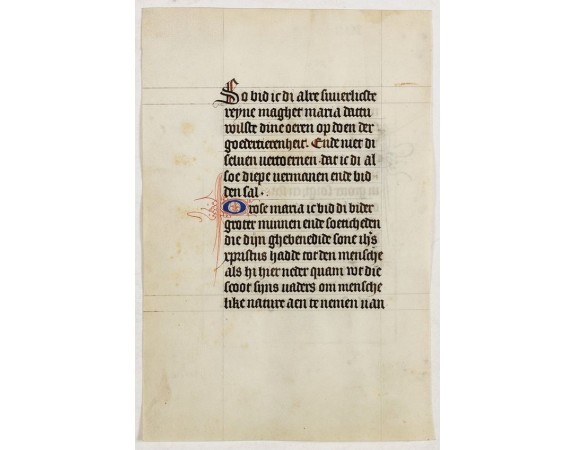 So bid ic di alre suuerlicste
reyne maghet maria dattu
wilste dine oeren op doen der
goedertierenheit. Ende niet di
seluen vertoernen dat ic di al
soe diepe vermanen ende bid
den sal.
O rose maria ic bid di bider
groter minnen ende soeticheden
die dijn ghebenedide sone ihs
xpristus hadde tot den mensche
als hi hier neder quam wt die
scoot sijns vaders om mensche
like nature aen te nemen van